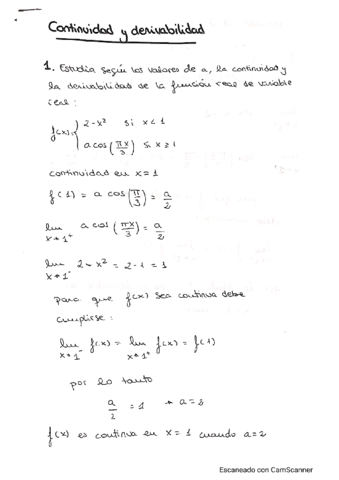 Continuidad y derivabilidad
1. Estudia según los valores de a, la continuidad y
la derivabilidad de la función real de variable
real:
f(x) = { 2-x² si x<1
a cos (πx/3) si x≥1
continuidad en x=1
f(1) = a cos (π/3) = a/2
lim x→1⁺ a cos (πx/3) = a/2
lim x→1⁻ 2-x² = 2-1 = 1
para que f(x) sea continua debe
cumplirse:
lim x→1⁻ f(x) = lim x→1⁺ f(x) = f(1)
por lo tanto
a/2 = 1 → a=
f(x) es continua en x=1 cuando a=2
Escaneado con CamScanner